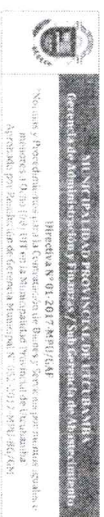 MUNICIPALIDAD PROVINCIAL DE UTCUBAMBA
Gerencia de Administración y Finanzas / Sub Gerencia de Abastecimiento
Directiva N° 01-2017-MPU/GAF
"Normas y Procedimientos para la Contratación de Bienes y Servicios por montos iguales o
menores a Ocho (08) UIT en la Municipalidad Provincial de Utcubamba
Aprobada por Resolución de Gerencia Municipal N°